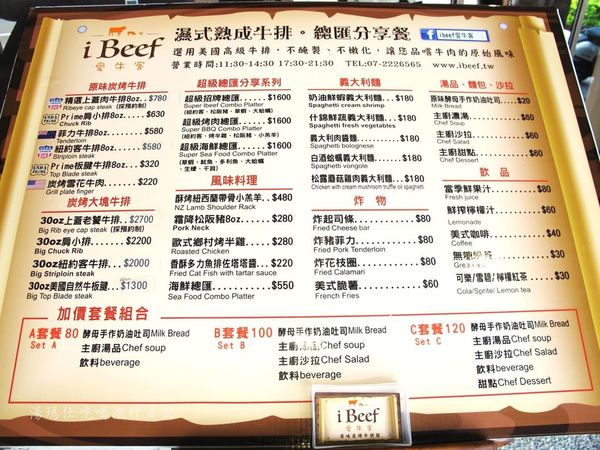 i Beef
愛牛客
濕式熟成牛排。總匯分享餐
f ibeef愛牛客
選用美國高級牛排，不醃製、不嫩化，讓您品嚐牛肉的原始風味
營業時間:11:30-14:30 17:30-21:30 TEL:07-2226565 www.ibeef.tw
原味炭烤牛排
精選上蓋肉牛排8oz. $780
Ribeye cap steak (採預約制)
Prime肩小排8oz... $630
Chuck Rib
菲力牛排8oz...... $580
Tenderloin
紐約客牛排8oz.. $580
Striploin steak
Prime板腱牛排8oz. $320
Top Blade steak
炭烤雪花牛肉..... $220
Grill plate finger
炭烤大塊牛排
30oz上蓋老饕牛排.. $2700
Big Rib eye cap steak (採預約制)
30oz肩小排........ $2200
Big Chuck Rib
30oz紐約客牛排... $2000
Big Striploin steak
30oz美國自然牛板腱... $1300
Big Top Blade steak
超級總匯分享系列
超級招牌總匯...... $1600
Super Ibeef Combo Platter
(紐約客、松阪豬、草蝦、大蛤蠣)
超級烤肉總匯...... $1600
Super BBQ Combo Platter
(紐約客、烤半雞、松阪豬、小羔羊)
超級海鮮總匯...... $1600
Super Sea Food Combo Platter
風味料理
酥烤紐西蘭帶骨小羔羊.. $480
NZ Lamb Shoulder Rack
霜降松阪豬8oz...... $280
Pork Neck
歐式鄉村烤半雞..... $280
Roasted Chicken
香酥多力魚排佐塔塔醬... $220
Fried Cat Fish with tartar sauce
海鮮總匯.......... $550
Sea Food Combo Platter
義大利麵
奶油鮮蝦義大利麵... $180
Spaghetti cream shrimp
什錦鮮蔬義大利麵... $180
Spaghetti fresh vegetables
義大利肉醬麵...... $180
Spaghetti bolognese
白酒蛤蠣義大利麵... $180
Spaghetti vongole
松露蘑菇雞肉義大利麵. $180
Chicken with cream mushroom truffle oil spaghetti
炸物
炸起司條......... $80
Fried Cheese bar
炸豬菲力......... $80
Fried Pork Tenderloin
炸花枝圈......... $80
Fried Calamari
美式脆薯......... $60
French Fries
湯品、麵包、沙拉
原味酵母手作奶油吐司.. $20
Milk Bread
主廚濃湯....... $60
Chef Soup
主廚沙拉....... $60
Chef Salad
主廚甜點....... $60
Chef Dessert
飲品
當季鮮果汁..... $80
Fresh juice
鮮搾檸檬汁..... $60
Lemonade
美式咖啡....... $60
Coffee
$40
可樂/雪碧/檸檬紅茶.. $30
Cola/Sprite/ Lemon tea
加價套餐組合
A套餐 80 酵母手作奶油吐司Milk Bread
Set A 主廚湯品Chef soup
飲料beverage
B套餐 100 酵母手作奶油吐司Milk Bread
Set B Chef soup
主廚沙拉Chef Salad
飲料beverage
C套餐 120 酵母手作奶油吐司Milk Bread
Set C 主廚湯品Chef soup
主廚沙拉Chef Salad
飲料beverage
甜點Chef Dessert
i Beef
愛牛客